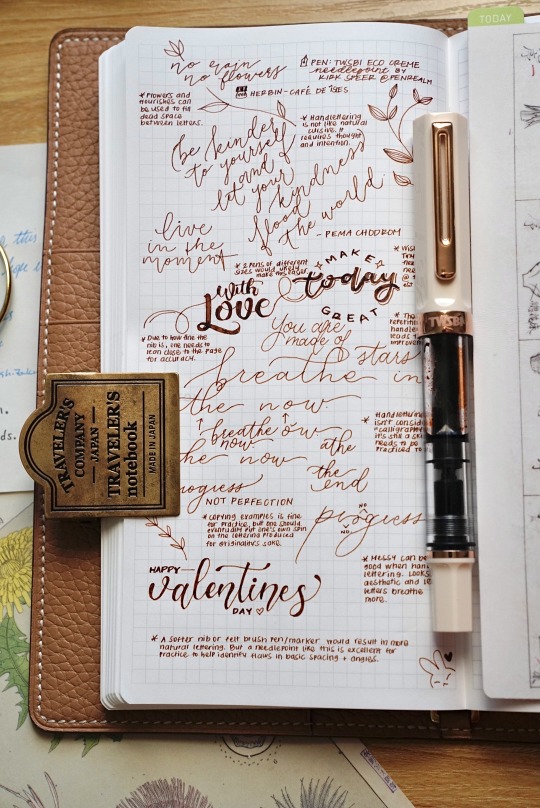 TODAY
no rain
no flowers
PEN: TWSBI ECO CREME
needlepoint by
KIRK SPEER @PENREALM
HERBIN - CAFÉ DE ISLES
* Flowers and
flourishes can
be used to fill
dead space
between letters.
* Handlettering
is not like natural
cursive. It
requires thought
and intention.
be kinder
to yourself
and
let your
kindness
flood
the world.
- PEMA CHODROM
live
in the
moment
* 2 pens of different
sizes would likely
make this easier
MAKE
today
GREAT
With
Love
* Due to how fine the
nib is, one needs to
lean close to the page
for accuracy.
You are
made of
stars
breathe in
the now.
breathe
now
the now
athe
the
end
progress
NOT PERFECTION
* Copying examples is fine
for practice, but one should
eventually put one's own spin
on the lettering produced
for originality's sake.
NO
progress
NO
* Handlettering
isn't consider
"calligraphy
it's still a sk
needs to be
practiced to
* Messy can be
good when han
lettering. Looks
aesthetic and le
letters breathe
more.
HAPPY
valentines
DAY
* A softer nib or felt brush pen/marker would result in more
natural lettering. But a needlepoint like this is excellent for
practice to help identify flaws in basic spacing + angles.
TWSBI
TRAVELER'S
COMPANY
JAPAN
TRAVELER'S
notebook
MADE IN JAPAN